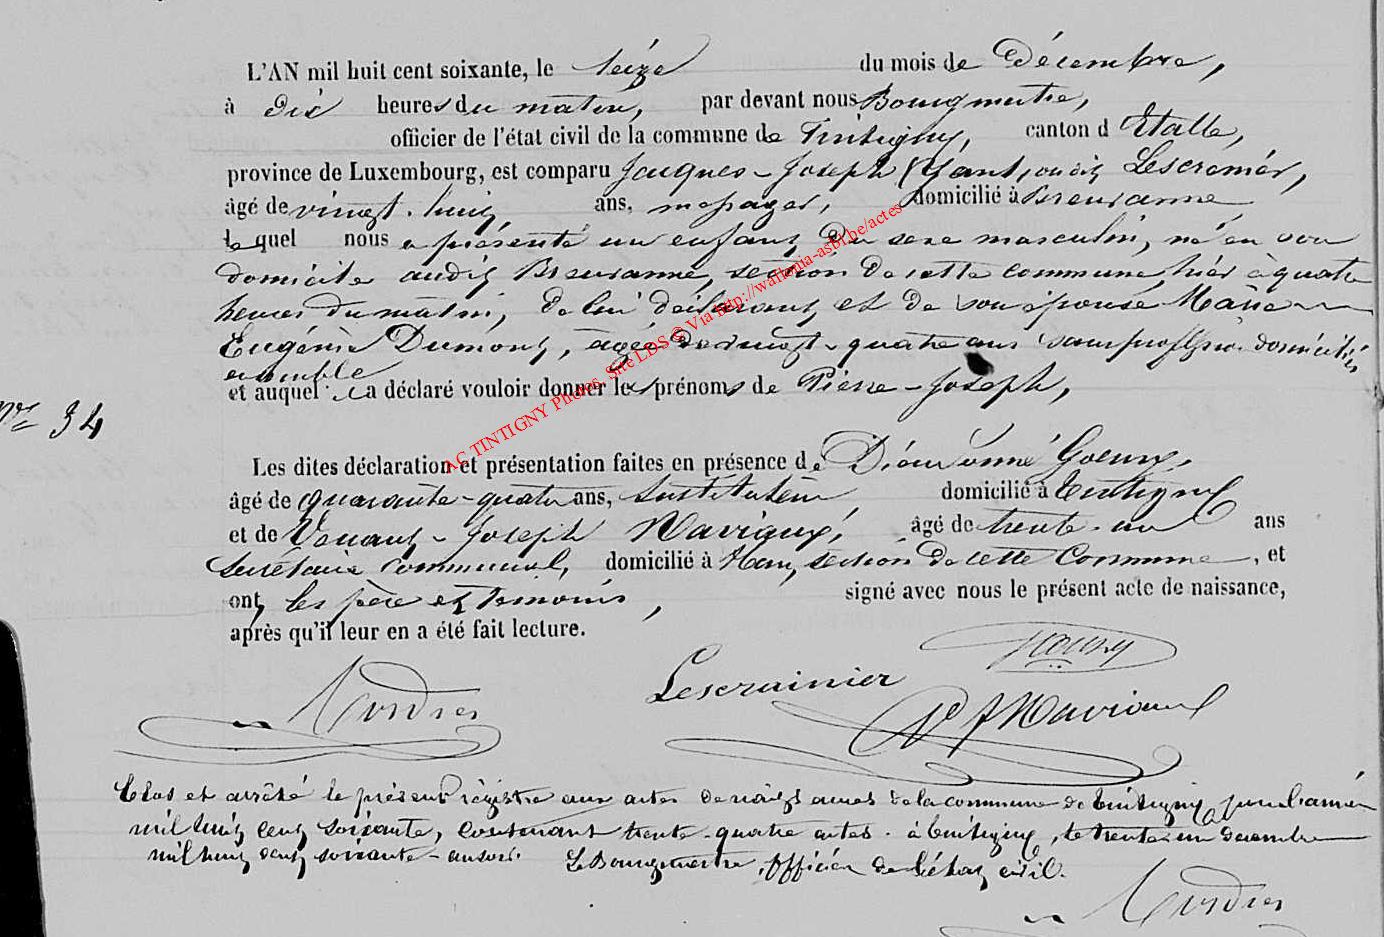 L'AN mil huit cent soixante, le seize du mois de Décembre,
à dix heures du matin, par devant nous Bourgmestre,
officier de l'état civil de la commune de Tintigny, canton d'Etalle,
province de Luxembourg, est comparu Jacques-Joseph Lescrenier,
âgé de vingt-huit ans, messager, domicilié à Breuvanne
lequel nous a présenté un enfant du sexe masculin, né en son
domicile audit Breuvanne, section de cette commune, hier à quatre
heures du matin, de lui déclarant et de son épouse Marie
Eugénie Dumont, âgée de vingt-quatre ans sans profession domiciliés
ensemble
et auquel il a déclaré vouloir donner les prénoms de Pierre-Joseph,
N° 34
Les dites déclaration et présentation faites en présence de Dieudonné Goeury,
âgé de quarante-quatre ans, Instituteur domicilié à Tintigny
et de Venant-Joseph Mavigny, âgé de trente-un ans
Secrétaire Communal, domicilié à Han, section de cette Commune, et
ont, les père et témoins, signé avec nous le présent acte de naissance,
après qu'il leur en a été fait lecture.
Lescrainier
Clos et arrêté le présent régistre aux actes de naissances de la commune de Tintigny, pour l'année
mil huit cent soixante, contenant trente-quatre actes. à Tintigny, le trente un décembre
mil huit cent soixante Le Bourgmestre, officier de l'état civil.
AC TINTIGNY Photos Site LDS © Via http://wallonia-asbl.be/actes